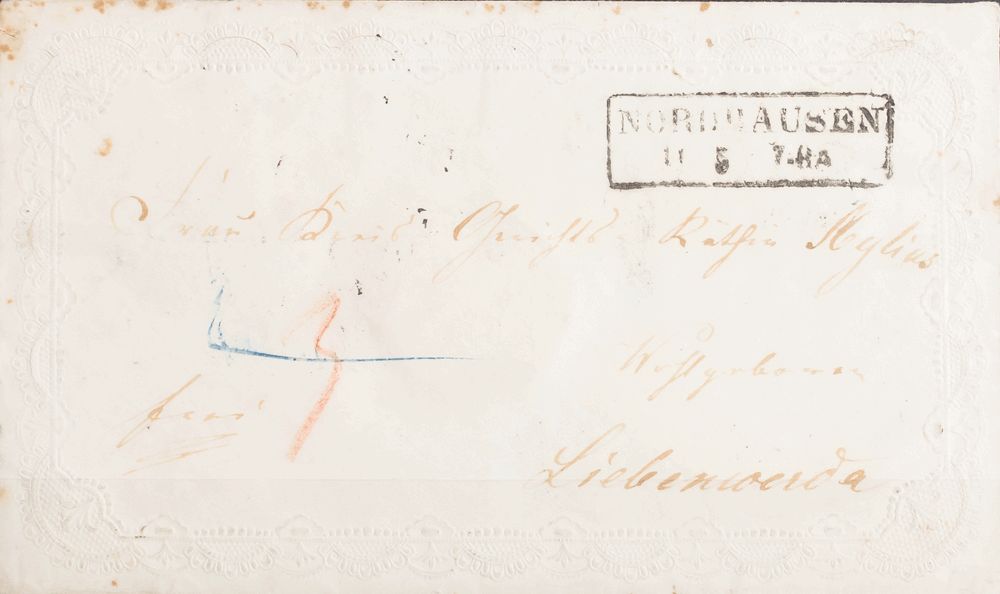 NORDHAUSEN
11 5 7-8A
Frau Kreis Gerichts Räthin Mylius
Wohlgeboren
frei
Liebenwerda